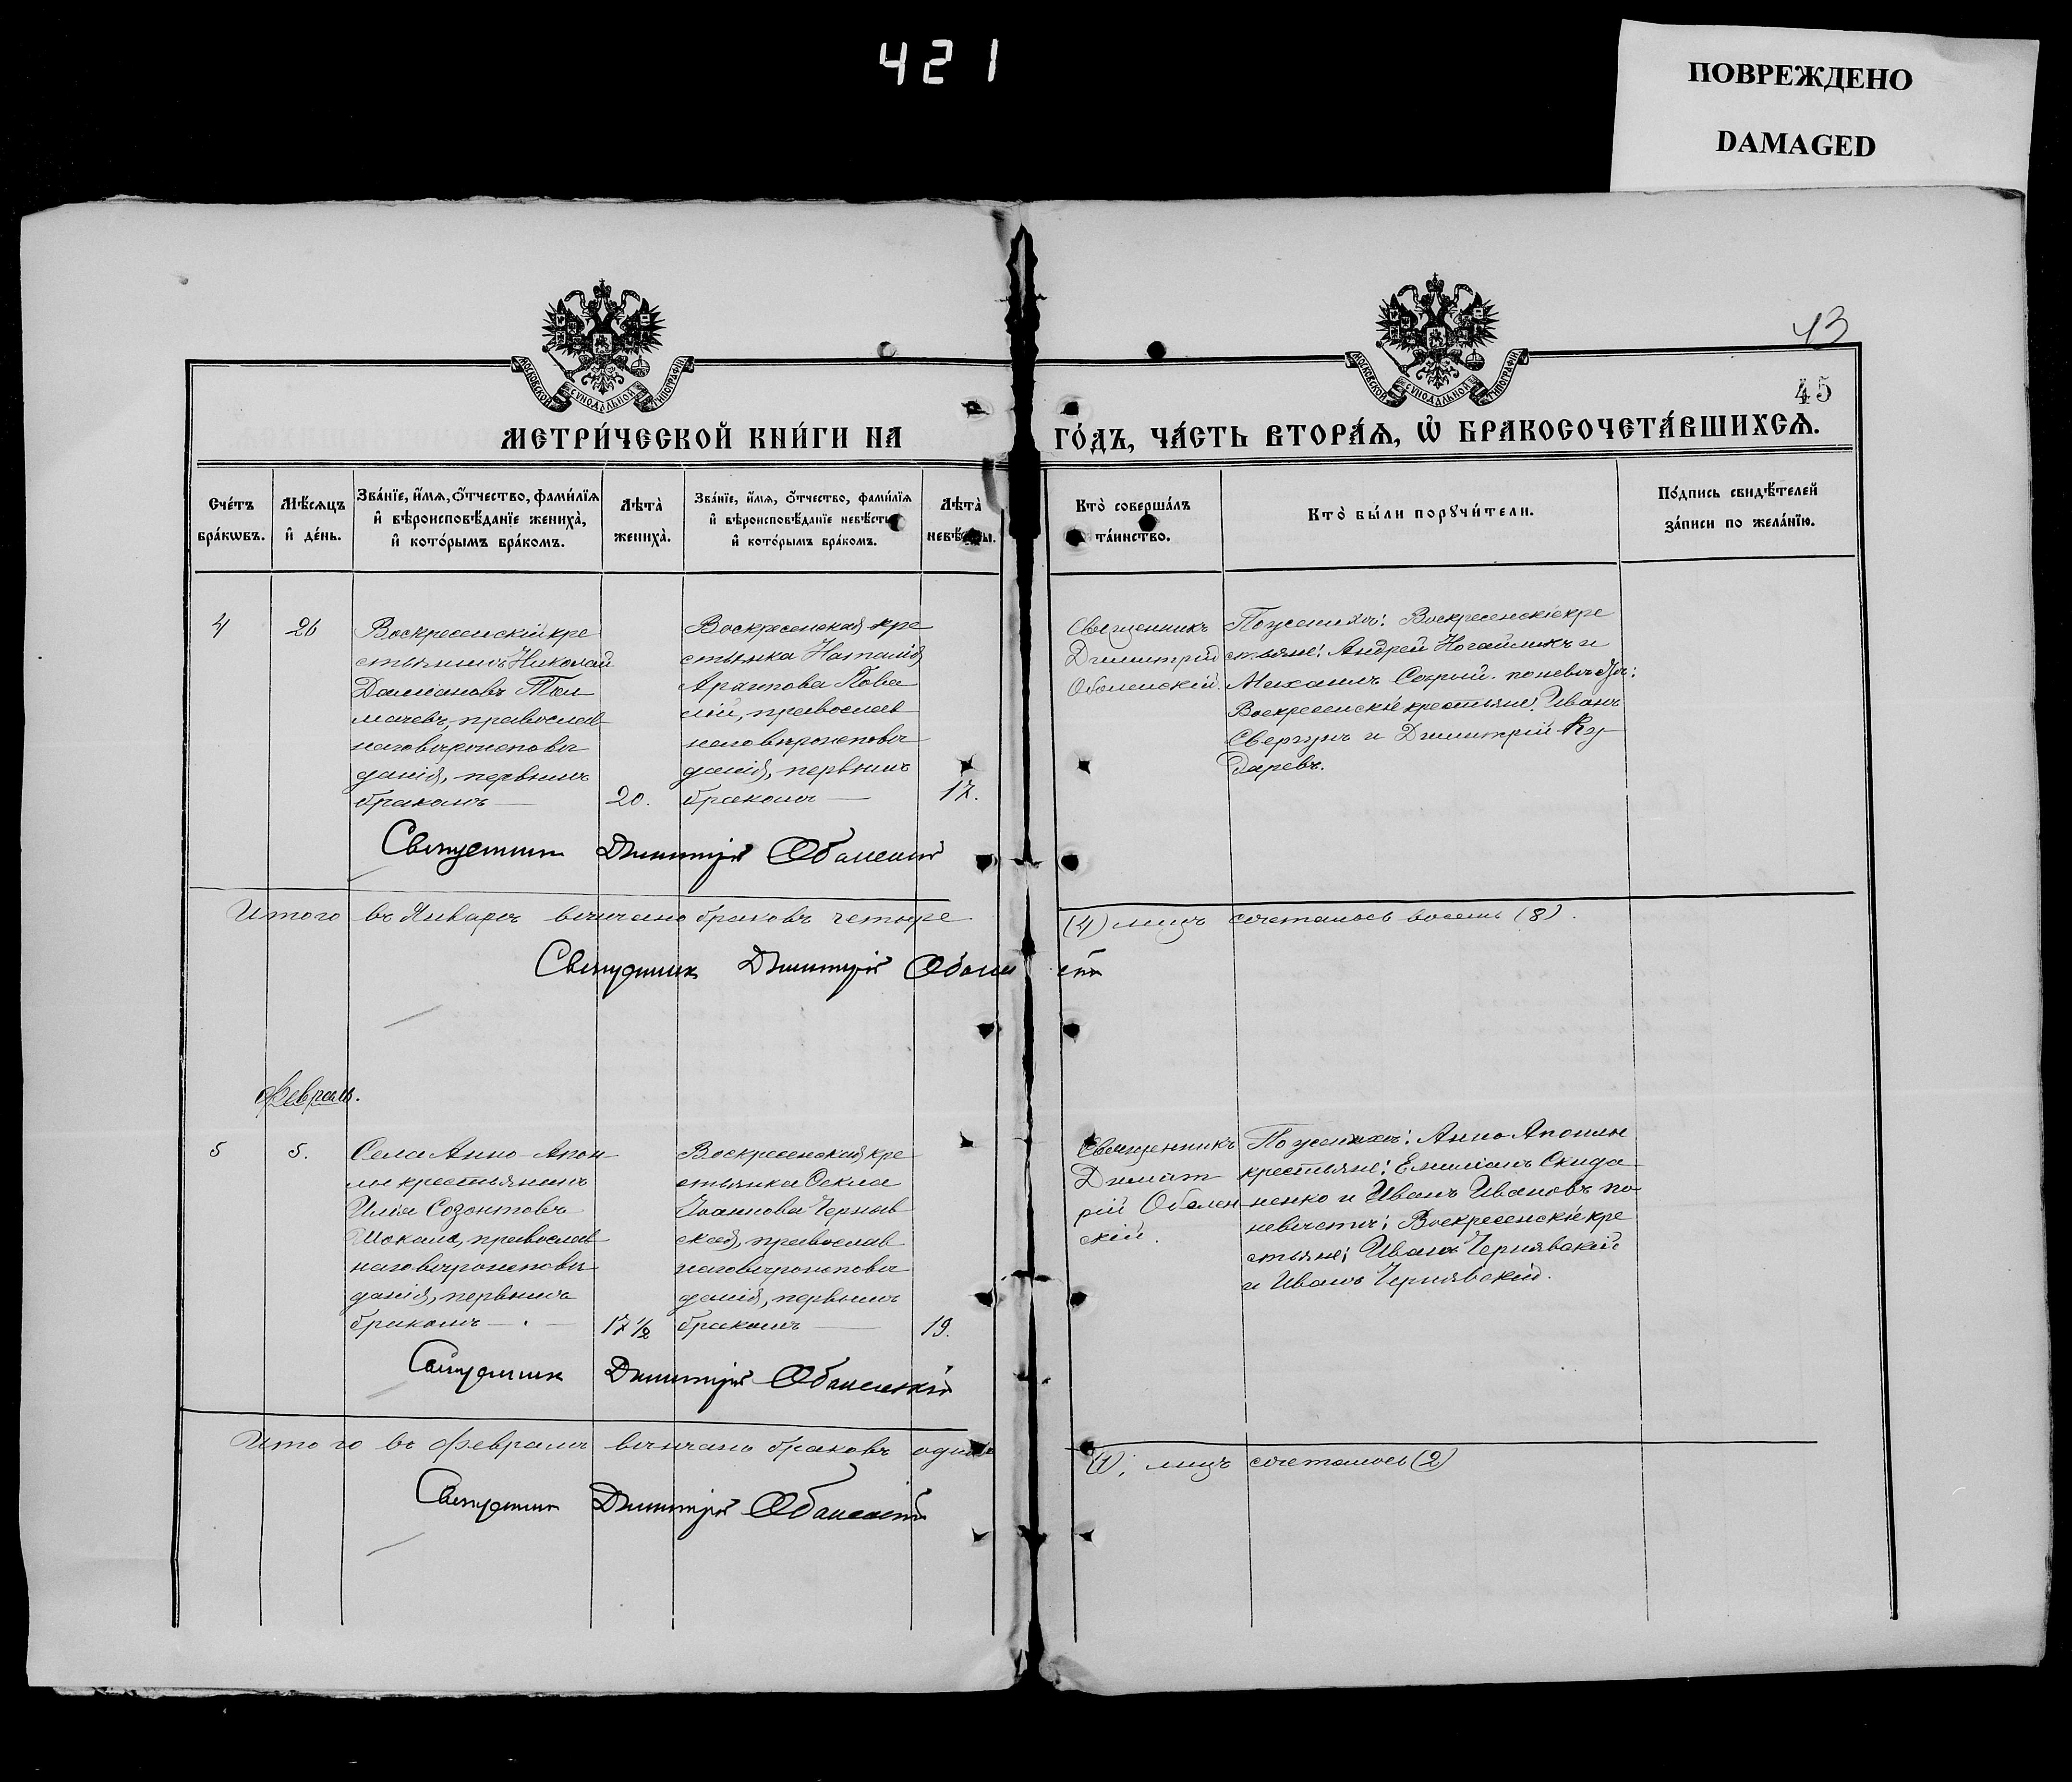 421
ПОВРЕЖДЕНО
DAMAGED
МОСКОВСКОЙ СѴНОДАЛЬНОЙ ТИПОГРАФІИ
МОСКОВСКОЙ СѴНОДАЛЬНОЙ ТИПОГРАФІИ
43
45
МЕТРИ́ЧЕСКОЙ КНИ́ГИ НА
ГО́ДЪ, ЧА́СТЬ ВТОРА́Ѧ, Ѡ҆ БРАКОСОЧЕТА́ВШИХСѦ.
Сче́тъ бра́кѡвъ.
Мѣ́сѧцъ и҆ де́нь.
Зва́нїе, и҆́мѧ, ѻ҆́тчество, фами́лїѧ
и҆ вѣроисповѣ́данїе жениха̀,
и҆ кото́рымъ бра́комъ.
Лѣта̀ жениха̀.
Зва́нїе, и҆́мѧ, ѻ҆́тчество, фами́лїѧ
и҆ вѣроисповѣ́данїе невѣ́сты,
и҆ кото́рымъ бра́комъ.
Лѣта̀ невѣ́сты.
Кто̀ соверша́лъ
та́инство.
Кто̀ бы́ли порꙋчи́тели.
По́дпись свидѣ́телей
за́писи по жела́нїю.
4
26
Воскресенскій кре
стьянинъ Николай
Даміановъ Тол
мачевъ, православ
наго вѣроисповѣ
данія, первымъ
бракомъ —
20.
Воскресенская кре
стьянка Наталія
Архипова Кова
лій, православ
наго вѣроисповѣ
данія, первымъ
бракомъ —
17.
Священникъ
Димитрій
Оболенскій.
По женихѣ: Воскресенскіе кре
стьяне: Андрей Ногайникъ и
Михаилъ Сѣрый. по невѣстѣ:
Воскресенскіе крестьяне: Иванъ
Свергунъ и Димитрій Ку
царевъ.
Священникъ Димитрій Оболенскій
Итого въ Январѣ вѣнчано браковъ четыре
(4) лицъ сочеталось восемь (8).
Священникъ Димитрій Оболенскій
Февраль.
5
5.
Села Анно-Апон
ли крестьянинъ
Илія Созонтовъ
Шокало, православ
наго вѣроисповѣ
данія, первымъ
бракомъ — . —
17 ½
Воскресенская кре
стьянка Фекла
Іоаннова Черняв
ская, православ
наго вѣроисповѣ
данія, первымъ
бракомъ —
19.
Священникъ
Димит
рій Оболен
скій.
По женихѣ: Анно-Апонли
крестьяне: Емиліанъ Скида
ненко и Иванъ Ивановъ по
невѣстѣ: Воскресенскіе кре
стьяне: Иванъ Чернявскій
и Иванъ Чернявскій.
Священникъ Димитрій Оболенскій
Итого въ февралѣ вѣнчано браковъ одинъ
(1), лицъ сочеталось (2)
Священникъ Димитрій Оболенскій